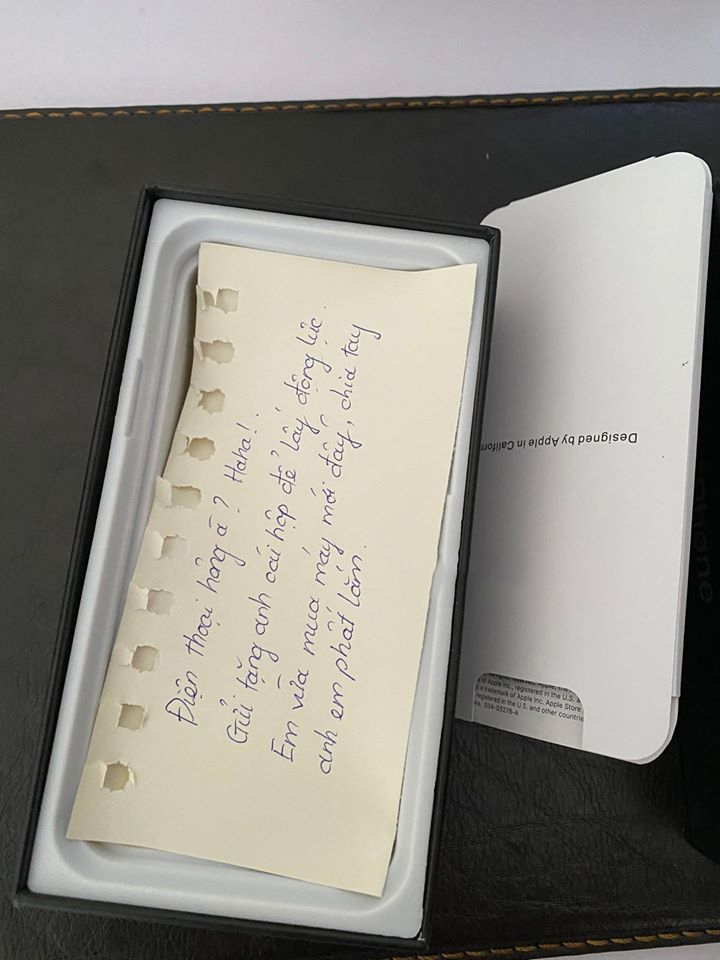 Điện thoại hỏng à? Haha!
Gửi tặng anh cái hộp để lấy động lực.
Em vừa mua máy mới đấy, chia tay
anh em phất lắm.
Designed by Apple in Californ
of Apple Inc., registered in the U.S. a
is a trademark of Apple Inc. Apple Store
registered in the U.S. and other countrie
034-03278-A